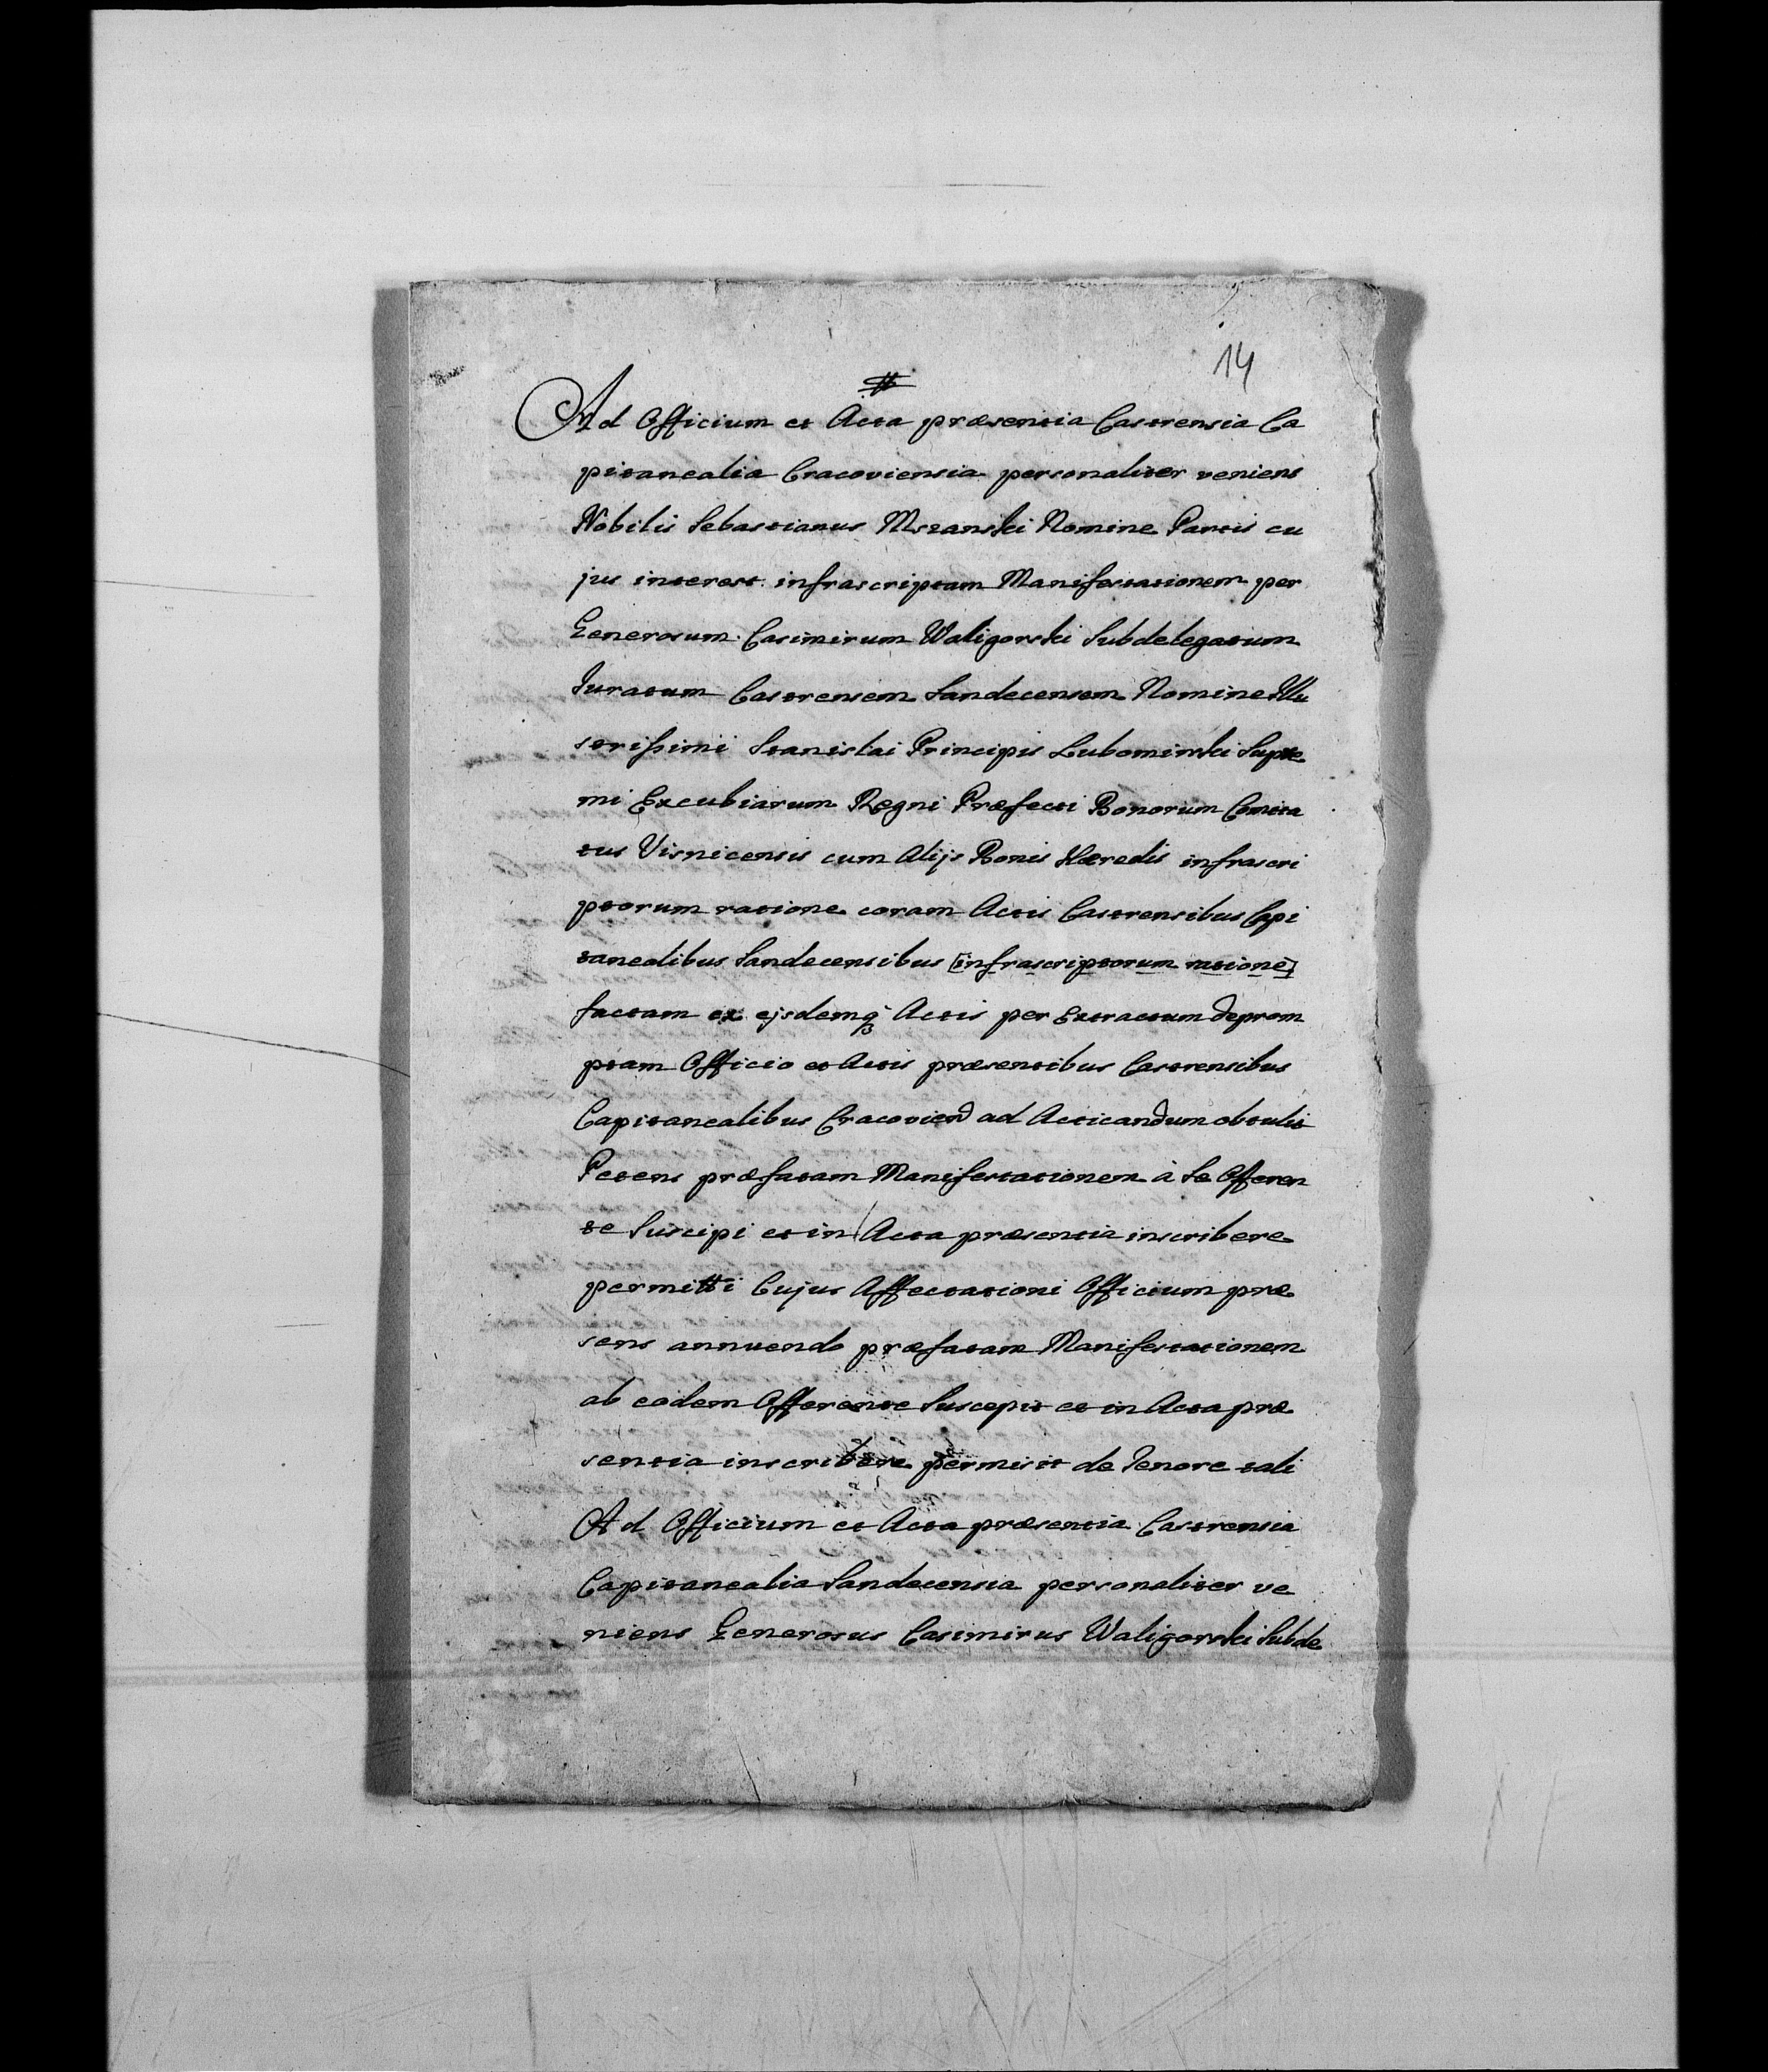 14
Ad Officium et Acta præsentia Castrensia Ca
pitanealia Cracoviensia personaliter veniens
Nobilis Sebastianus Mszanski Nomine Partis cu
jus interest infrascriptam Manifestationem per
Generosum Casimirum Waligorski Subdelegatum
Juratum Castrensem Sandecensem Nomine Illu
strissimi Stanislai Principis Lubomirski Supre
mi Excubiarum Regni Præfecti Bonorum Comita
tus Visnicensis cum Alijs Bonis Hæredis infrascri
ptorum ratione coram Actis Castrensibus Capi
tanealibus Sandecensibus [infrascriptorum ratione]
factam ex ejsdemq Actis per Extractum deprom
ptam Officio et Actis præsentibus Castrensibus
Capitanealibus Cracovien ad Acticandum obtulit
Petens præfatam Manifestationem à Se Offeren
te Suscipi et in Acta præsentia inscribere
permitti Cujus Affectationi Officium præ
sens annuendo præfatam Manifestationem
ab eodem Offerente Suscepit et in Acta præ
sentia inscribere permisit de Tenore tali
Ad Officium et Acta præsentia Castrensia
Capitanealia Sandecensia personaliter ve
niens Generosus Casimirus Waligorski Subde